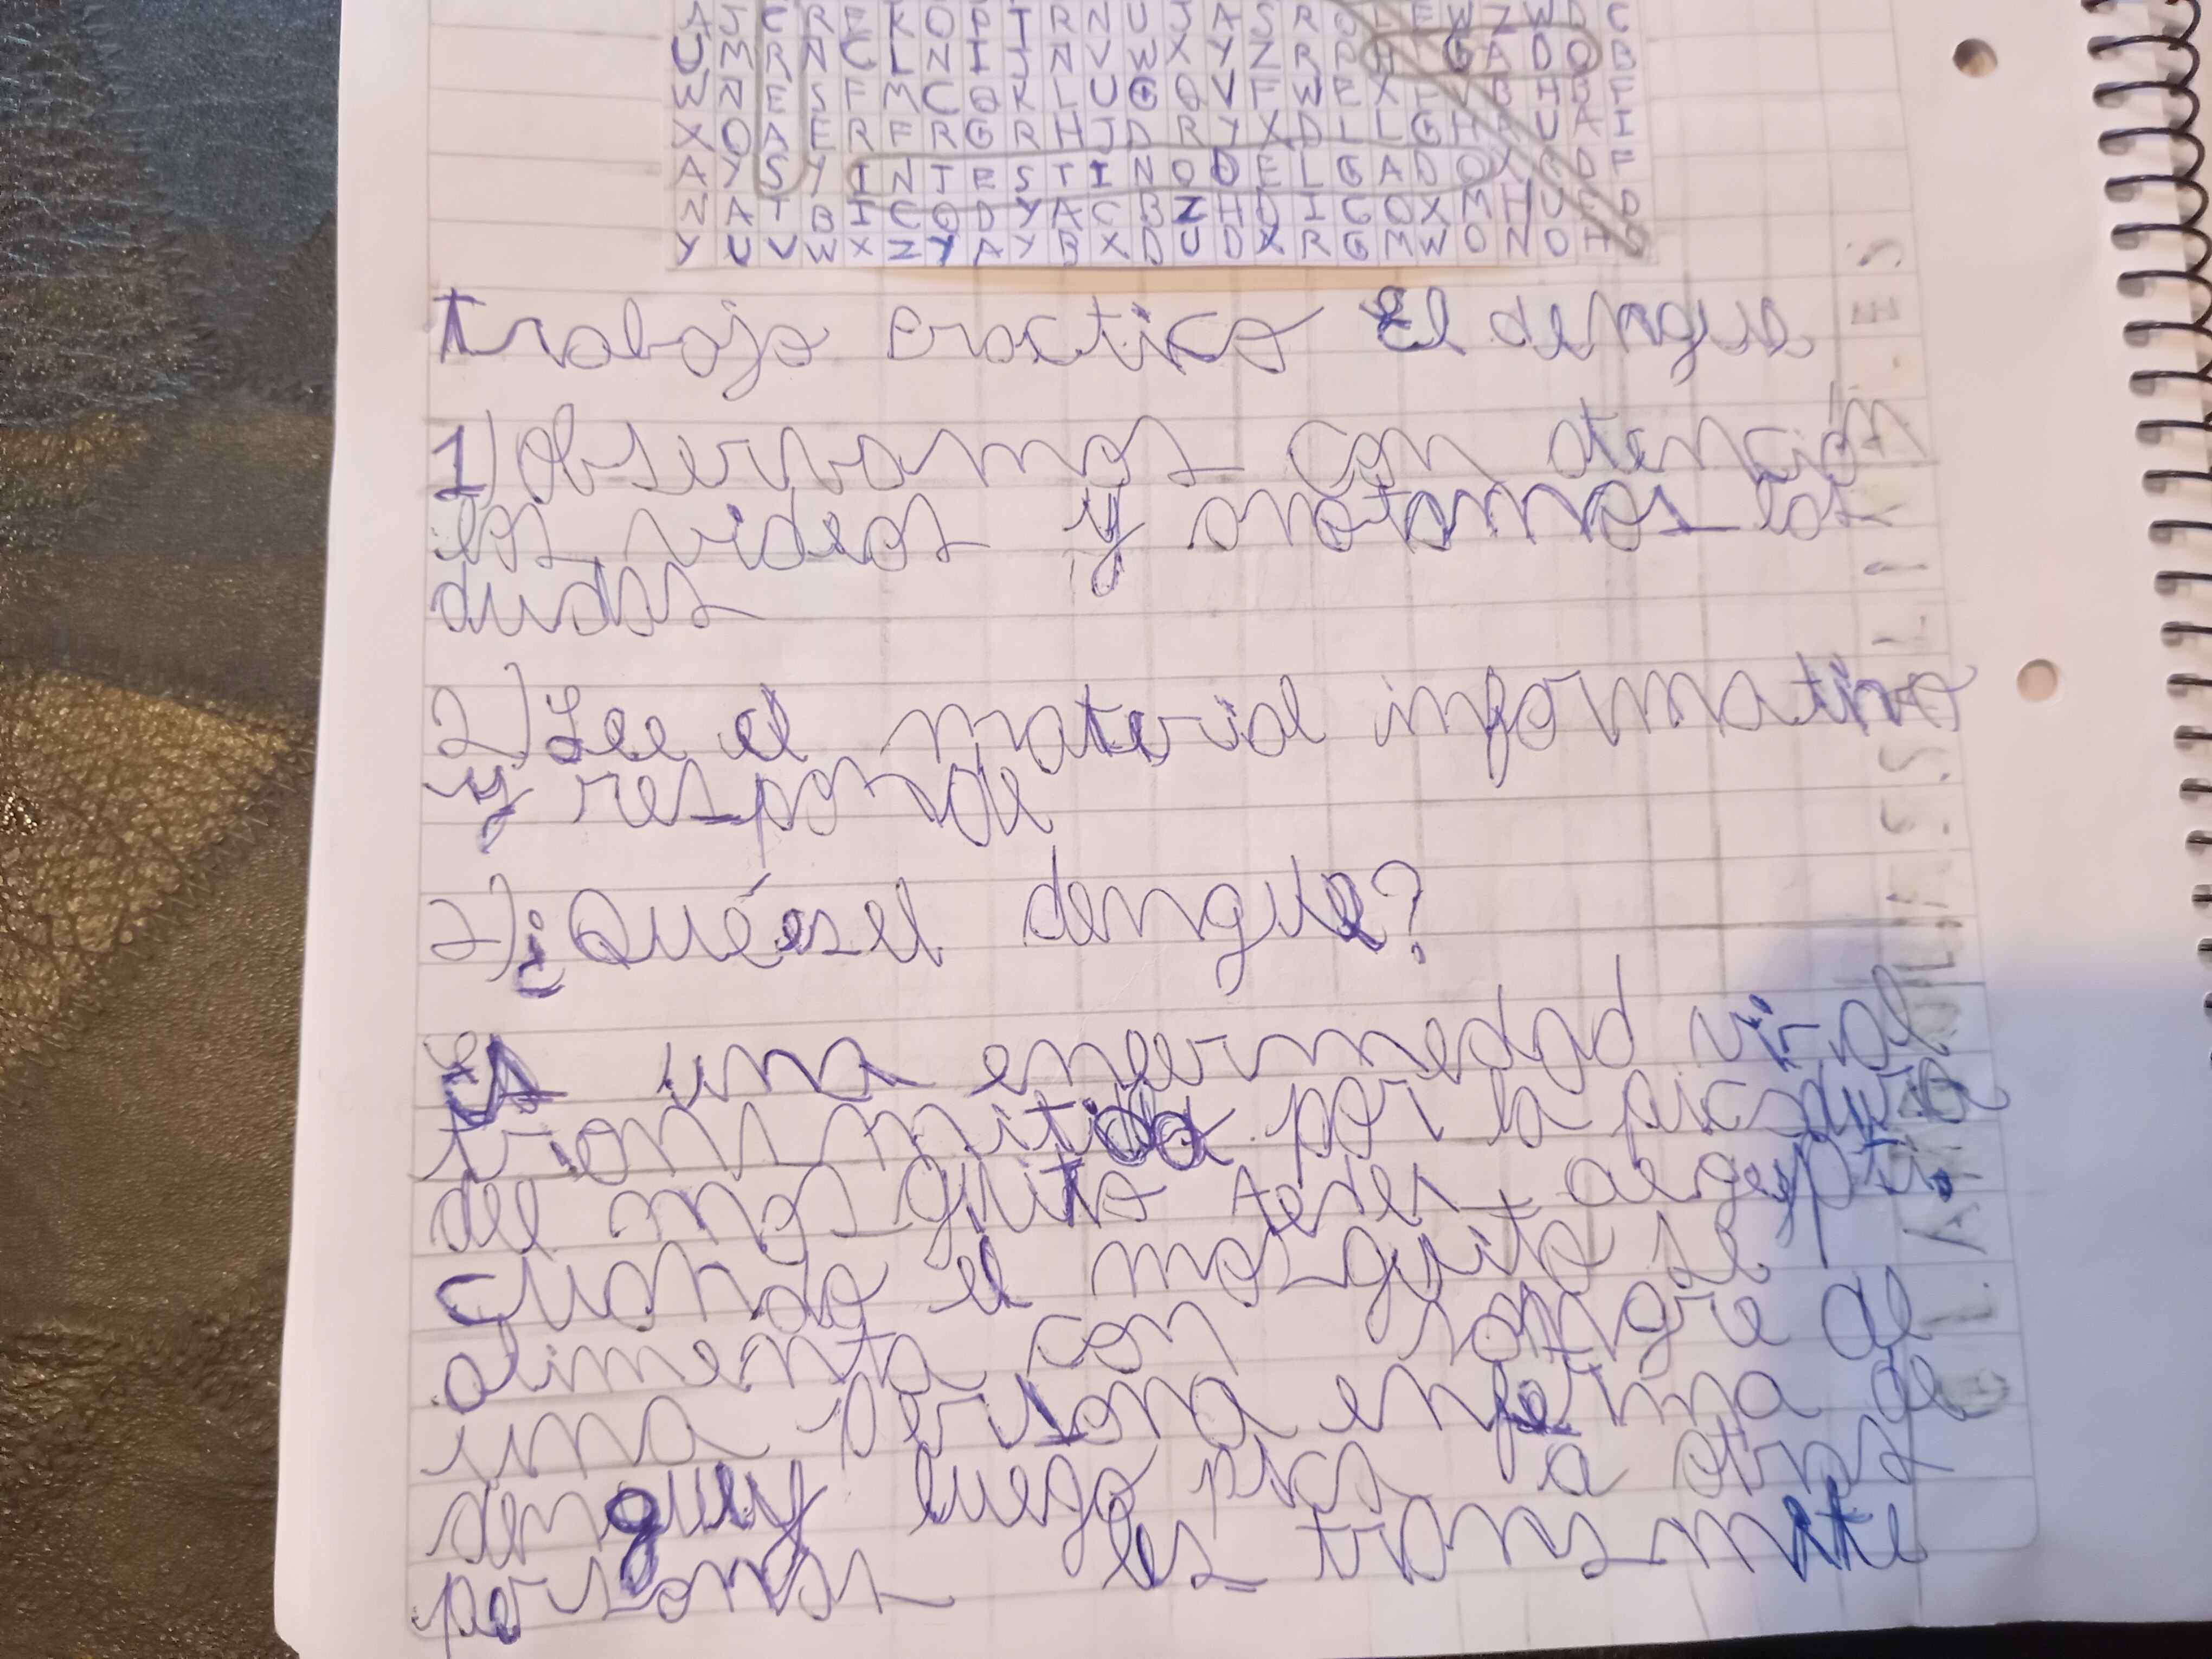 A J C R E K O P T R N U J A S R O L E W Z W D C
U M R N C L N I J N V W X Y Z R P H I G A D O B
W N E S F M C O K L U G O V F W E X F V B H B F
X O A E R F R G R H J D R Y X D L L G H A U A I
A Y S Y I N T E S T I N O D E L G A D O X R D F
N A T B I C O D Y A C B Z H D I G O X M H U E D
Y U V W X Z Y A Y B X D U D X R G M W O N O H
Trabajo Practico El dengue
1) Observamos con atención
los videos y anotamos las
dudas
2) Lee el material informativo
y responde
2) ¿Qué es el dengue?
Es una enfermedad viral
transmitida por la picadura
del mosquito Aedes aegypti.
cuando el mosquito se
alimenta con sangre de
una persona enferma de
dengue y luego pica a otras
personas les transmite